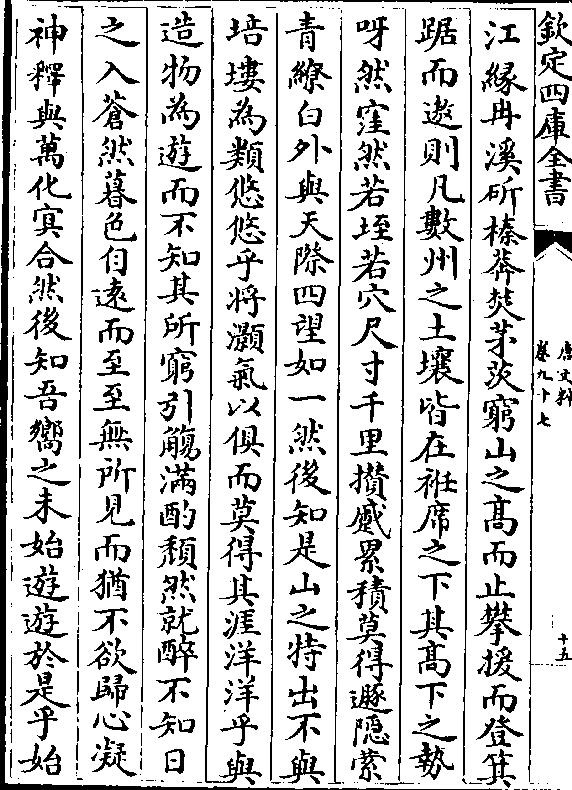 欽定四庫全書
唐文粹
卷九十七
十五
江緣冉溪斫榛莽焚茅茷窮山之髙而止攀援而登箕
踞而遨則凡數州之土壤皆在袵席之下其髙下之勢
呀然窪然若垤若穴尺寸千里攅蹙累積莫得遯隠縈
青繚白外與天際四望如一然後知是山之特出不與
培塿為類悠悠乎將灝氣以俱而莫得其涯洋洋乎與
造物為遊而不知其所窮引觴滿酌頽然就醉不知日
之入蒼然暮色自遠而至至無所見而猶不欲歸心凝
神釋與萬化冥合然後知吾嚮之未始遊遊於是乎始